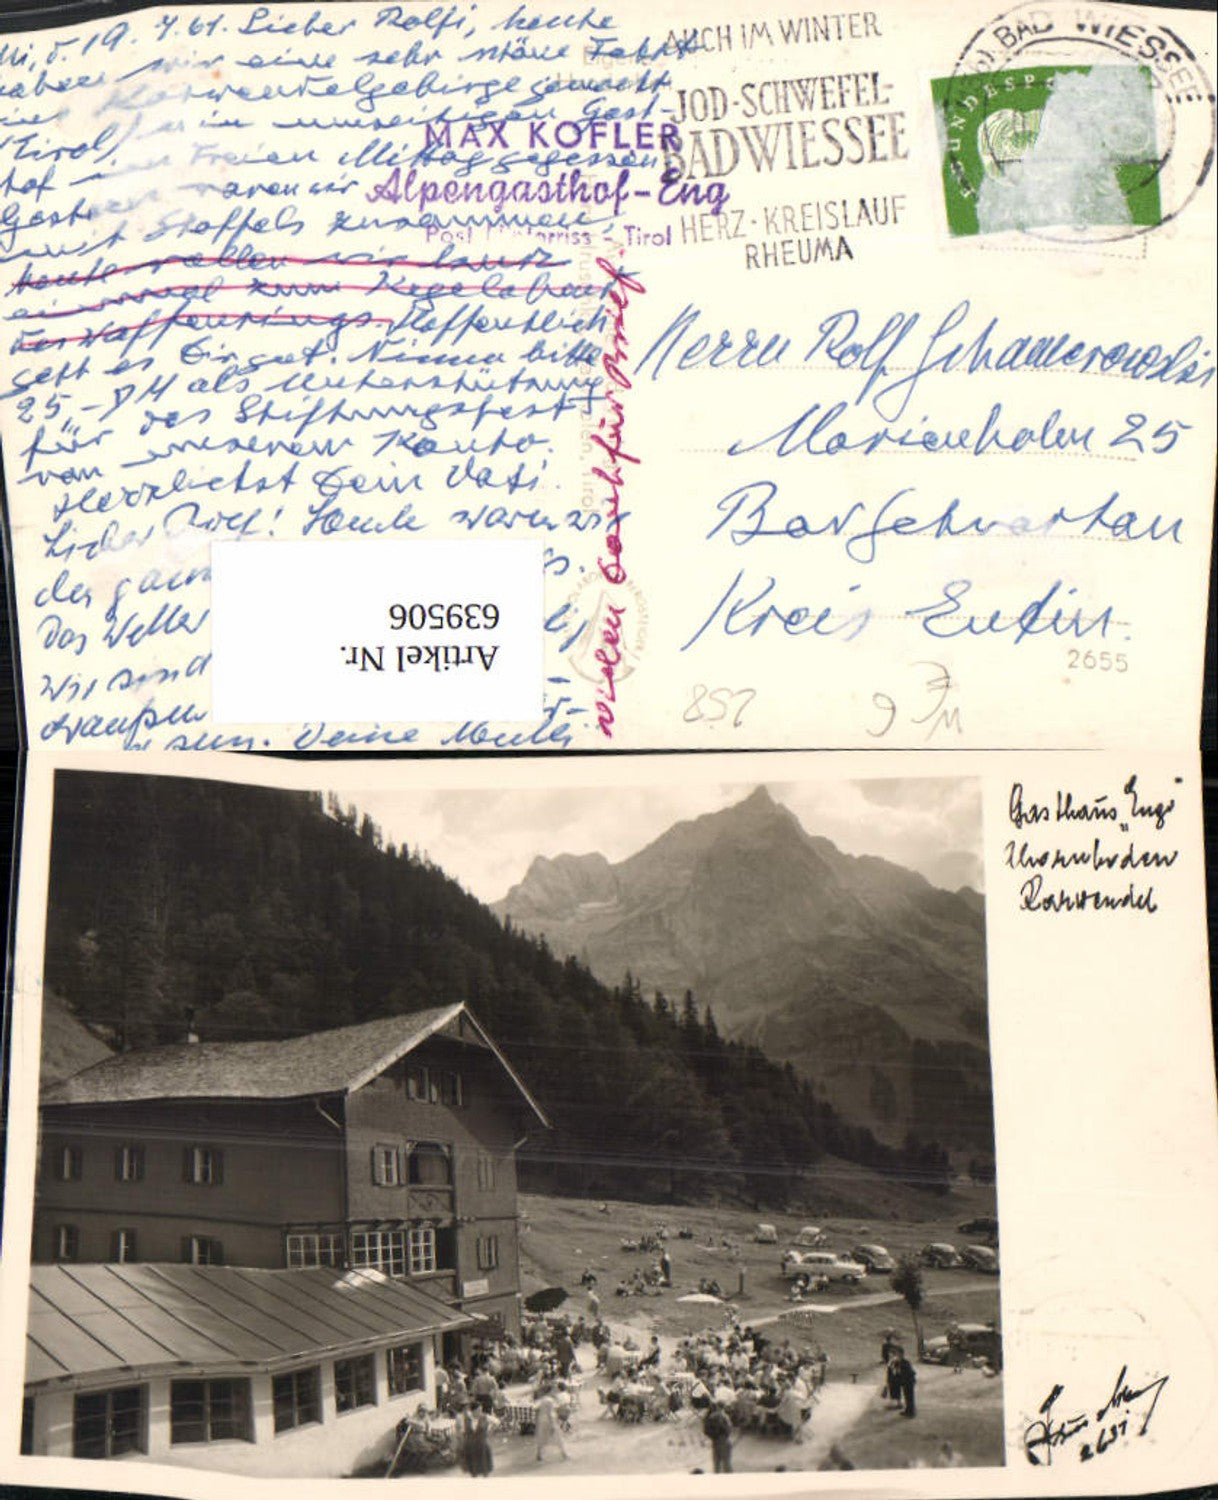 Mi, d. 19. 7. 61. Lieber Rolfi, heute
haben wir eine sehr schöne Fahrt
ins Karwendelgebirge gemacht
(Tirol) in einem Gast-
hof im Freien Mittag gegessen
Gestern waren wir
mit Stoffels zusammen,
heute wollen wir
einmal zum Kegelabend
des Waffenrings. Hoffentlich
geht es Dir gut. Nimm bitte
25,- DM als Unterstützung
für das Stiftungsfest
von unserem Konto.
Herzlichst Dein Vati.
Lieber Rolf! Heute waren wir
den ganz
Das Wetter
Wir sind
draußen
Deine Mutti
MAX KOFLER
Alpengasthof-Eng
Post Hinterriss - Tirol
AUCH IM WINTER
JOD-SCHWEFEL-
BAD WIESSEE
HERZ·KREISLAUF
RHEUMA
BAD WIESSEE
BUNDESPO
Herrn Rolf Schamerowski
Marienholm 25
Bad Schwartau
Kreis Eutin.
2655
258
Artikel Nr.
639506
Gasthaus "Eng"
Karwendel
2637